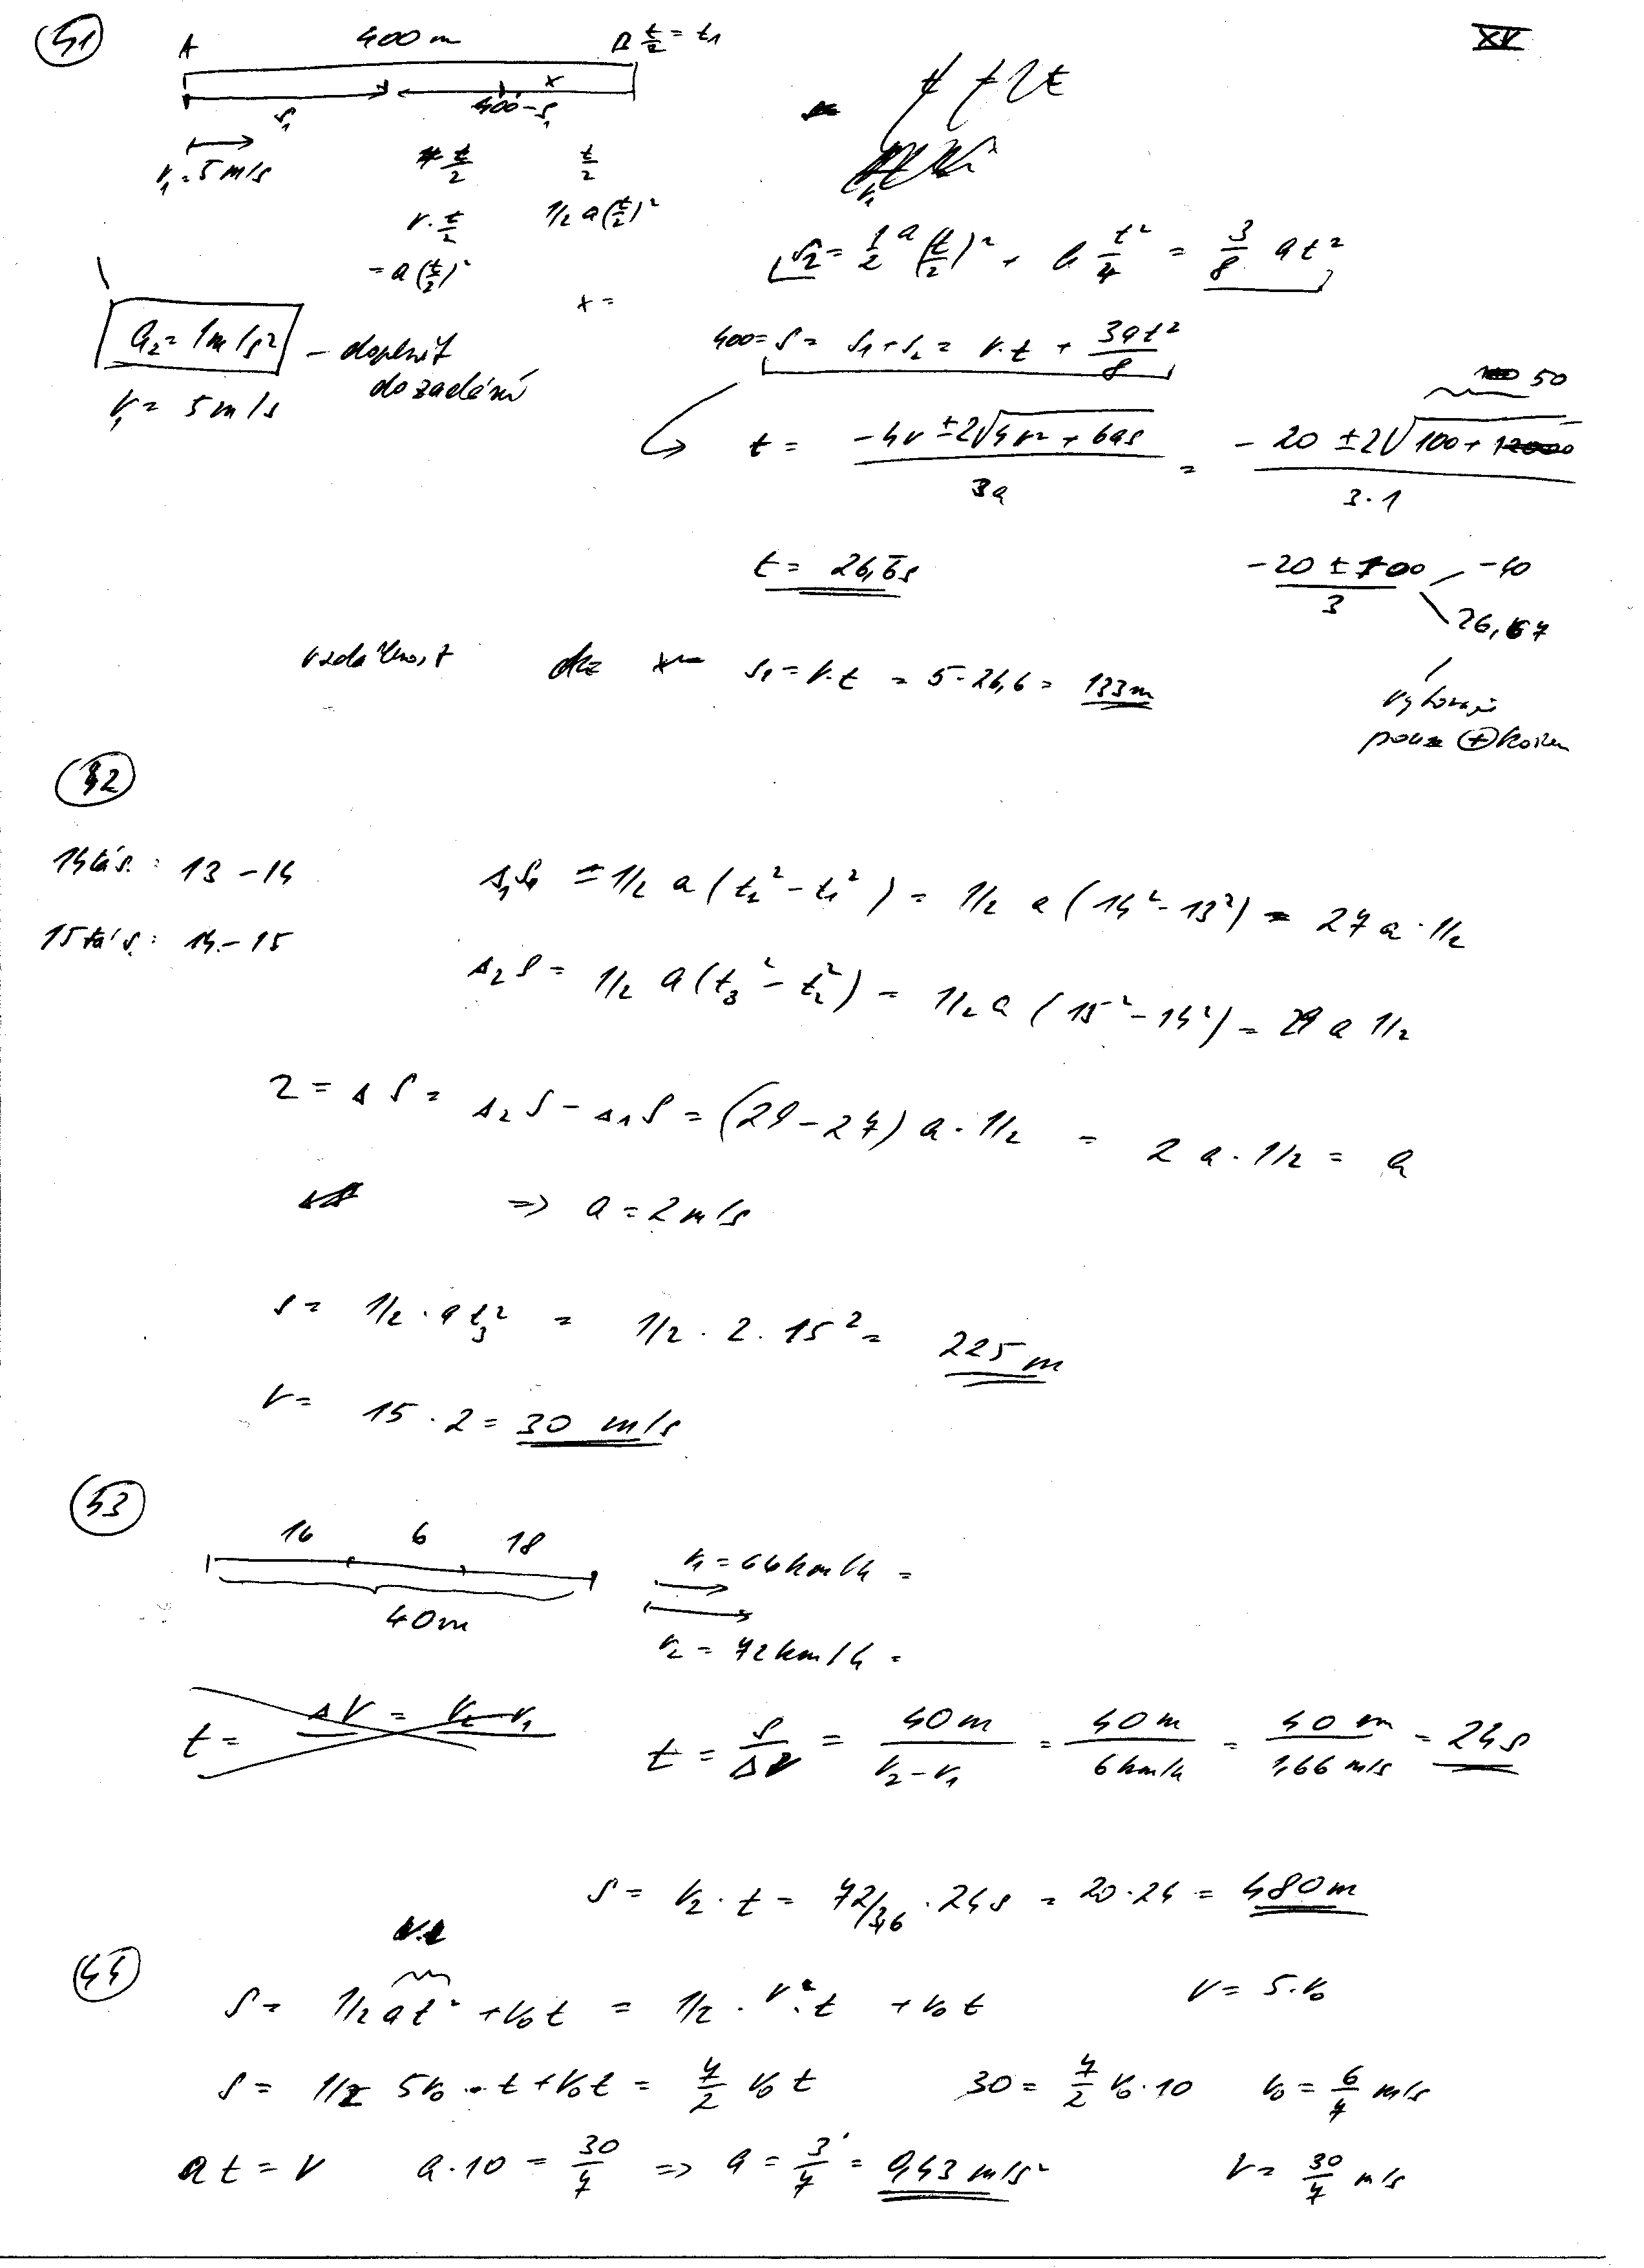 41
XV
A 400 m B t/2 = t₁
s₁ 400-s₁ x
v₁ = 5 m/s
t/2 t/2
v·t/2 1/2 a(t/2)²
= a(t/2)²
x =
s₂ = 1/2 a (t/2)² + a t²/4 = 3/8 a t²
a₂ = 1m/s² – doplnit do zadání
v₁ = 5 m/s
400 = s = s₁ + s₂ = v·t + 3at²/8
50
t = (-4v ± 2√(4v² + 6as))/3a = (-20 ± 2√(100+))/(3·1)
t = 26,6̄ s
(-20 ± 100)/3 -40
26,67
vyhovuje
pouze ⊕ kořen
vzdálenost s₁ = v·t = 5·26,6 = 133 m
42
14tá s. : 13 – 14
Δ₁s = 1/2 a (t₂² - t₁²) = 1/2 a (14² - 13²) = 27 a · 1/2
15tá s. : 14 – 15
Δ₂s = 1/2 a (t₃² - t₂²) = 1/2 a (15² - 14²) = 29 a 1/2
2 = Δs = Δ₂s – Δ₁s = (29 – 27) a · 1/2 = 2 a · 1/2 = a
=> a = 2 m/s
s = 1/2 · a t₃² = 1/2 · 2 · 15² = 225 m
v = 15 · 2 = 30 m/s
43
16 6 18
40 m
v₁ = 66 km/h =
v₂ = 72 km/h =
t = ΔV = v₂ - v₁
t = s/Δv = 40 m/(v₂ - v₁) = 40 m/6 km/h = 40 m/1,66 m/s = 24 s
s = v₂ · t = 72/3,6 · 24 s = 20·24 = 480 m
44
s = 1/2 a t² + v₀ t = 1/2 · v · t + v₀ t v = 5·v₀
s = 1/2 5v₀ · t + v₀ t = 7/2 v₀ t 30 = 7/2 v₀ · 10 v₀ = 6/7 m/s
a t = v a·10 = 30/7 => a = 3/7 = 0,43 m/s² v = 30/7 m/s